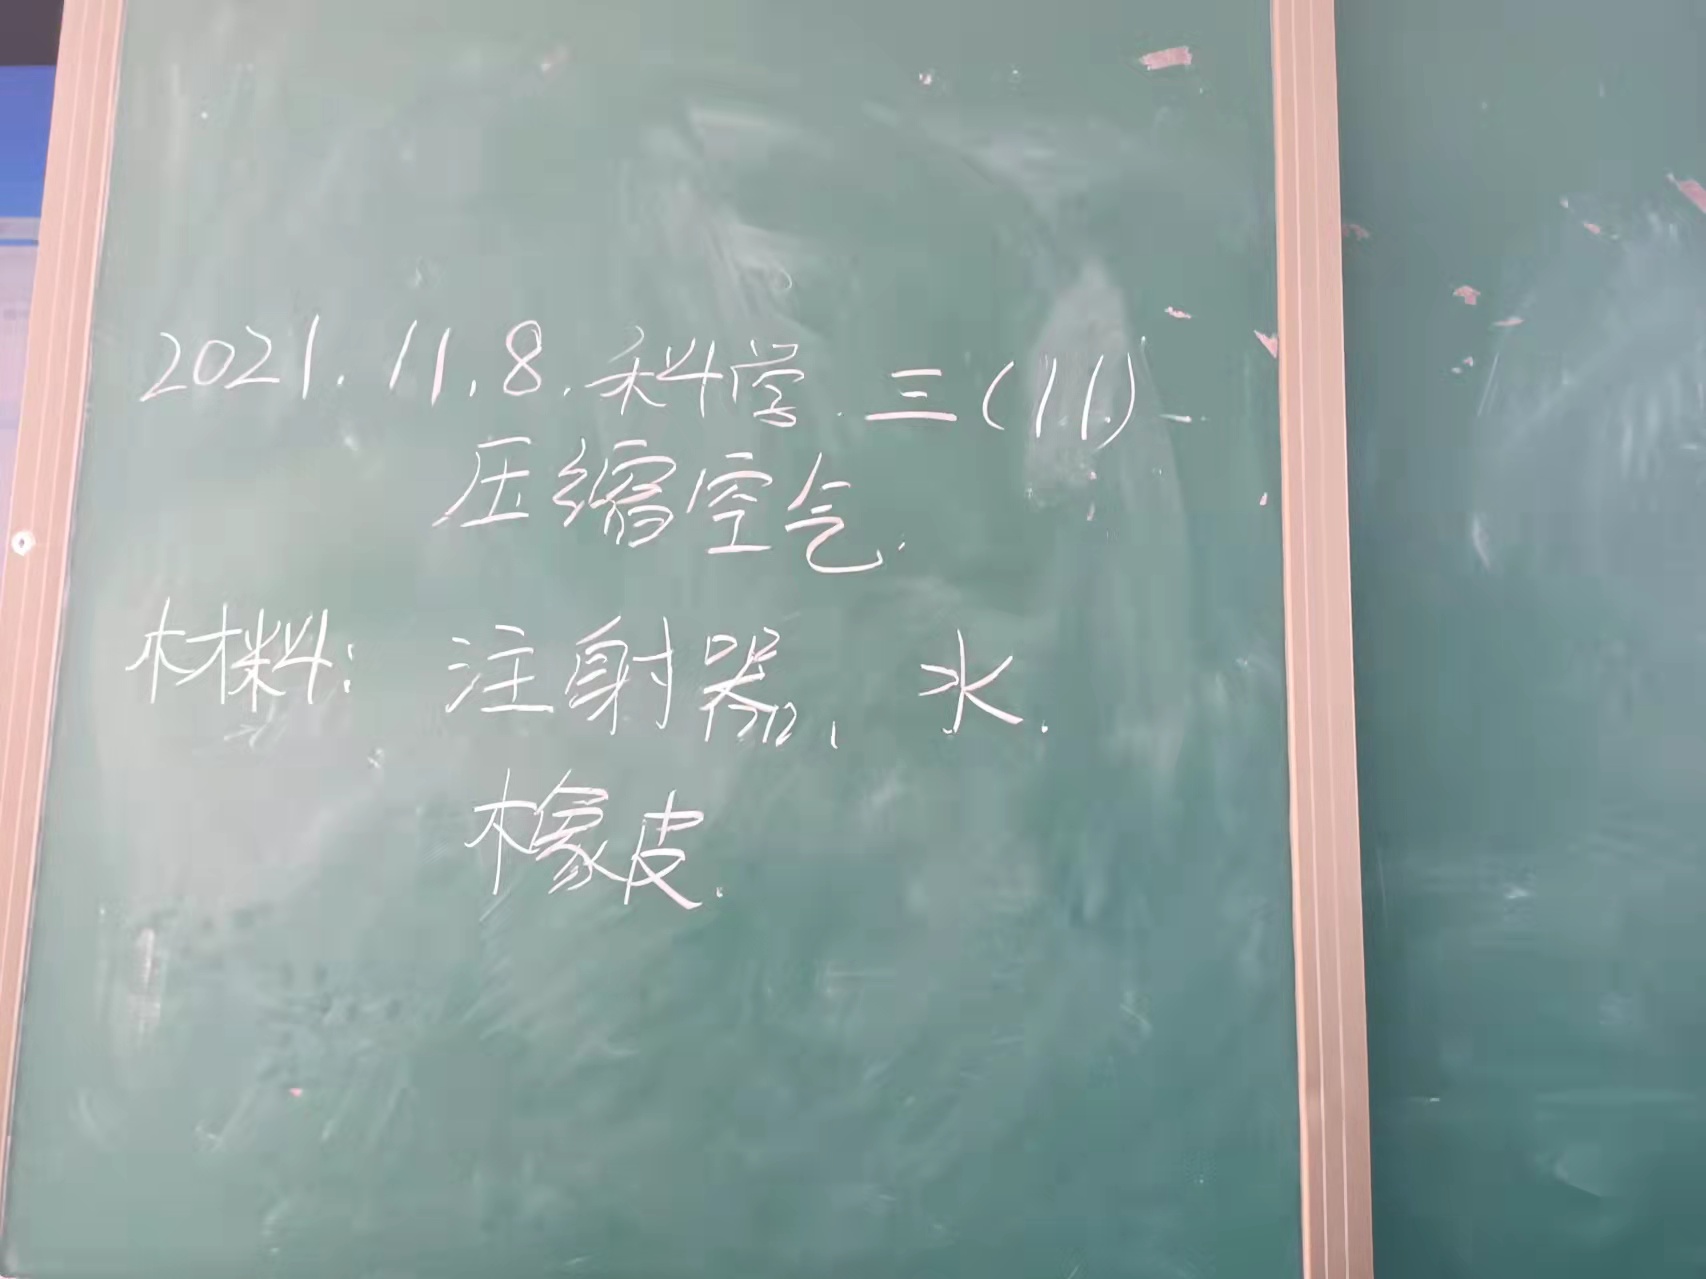 2021.11.8.科学.三(11)
压缩空气.
材料:注射器、水.
橡皮.